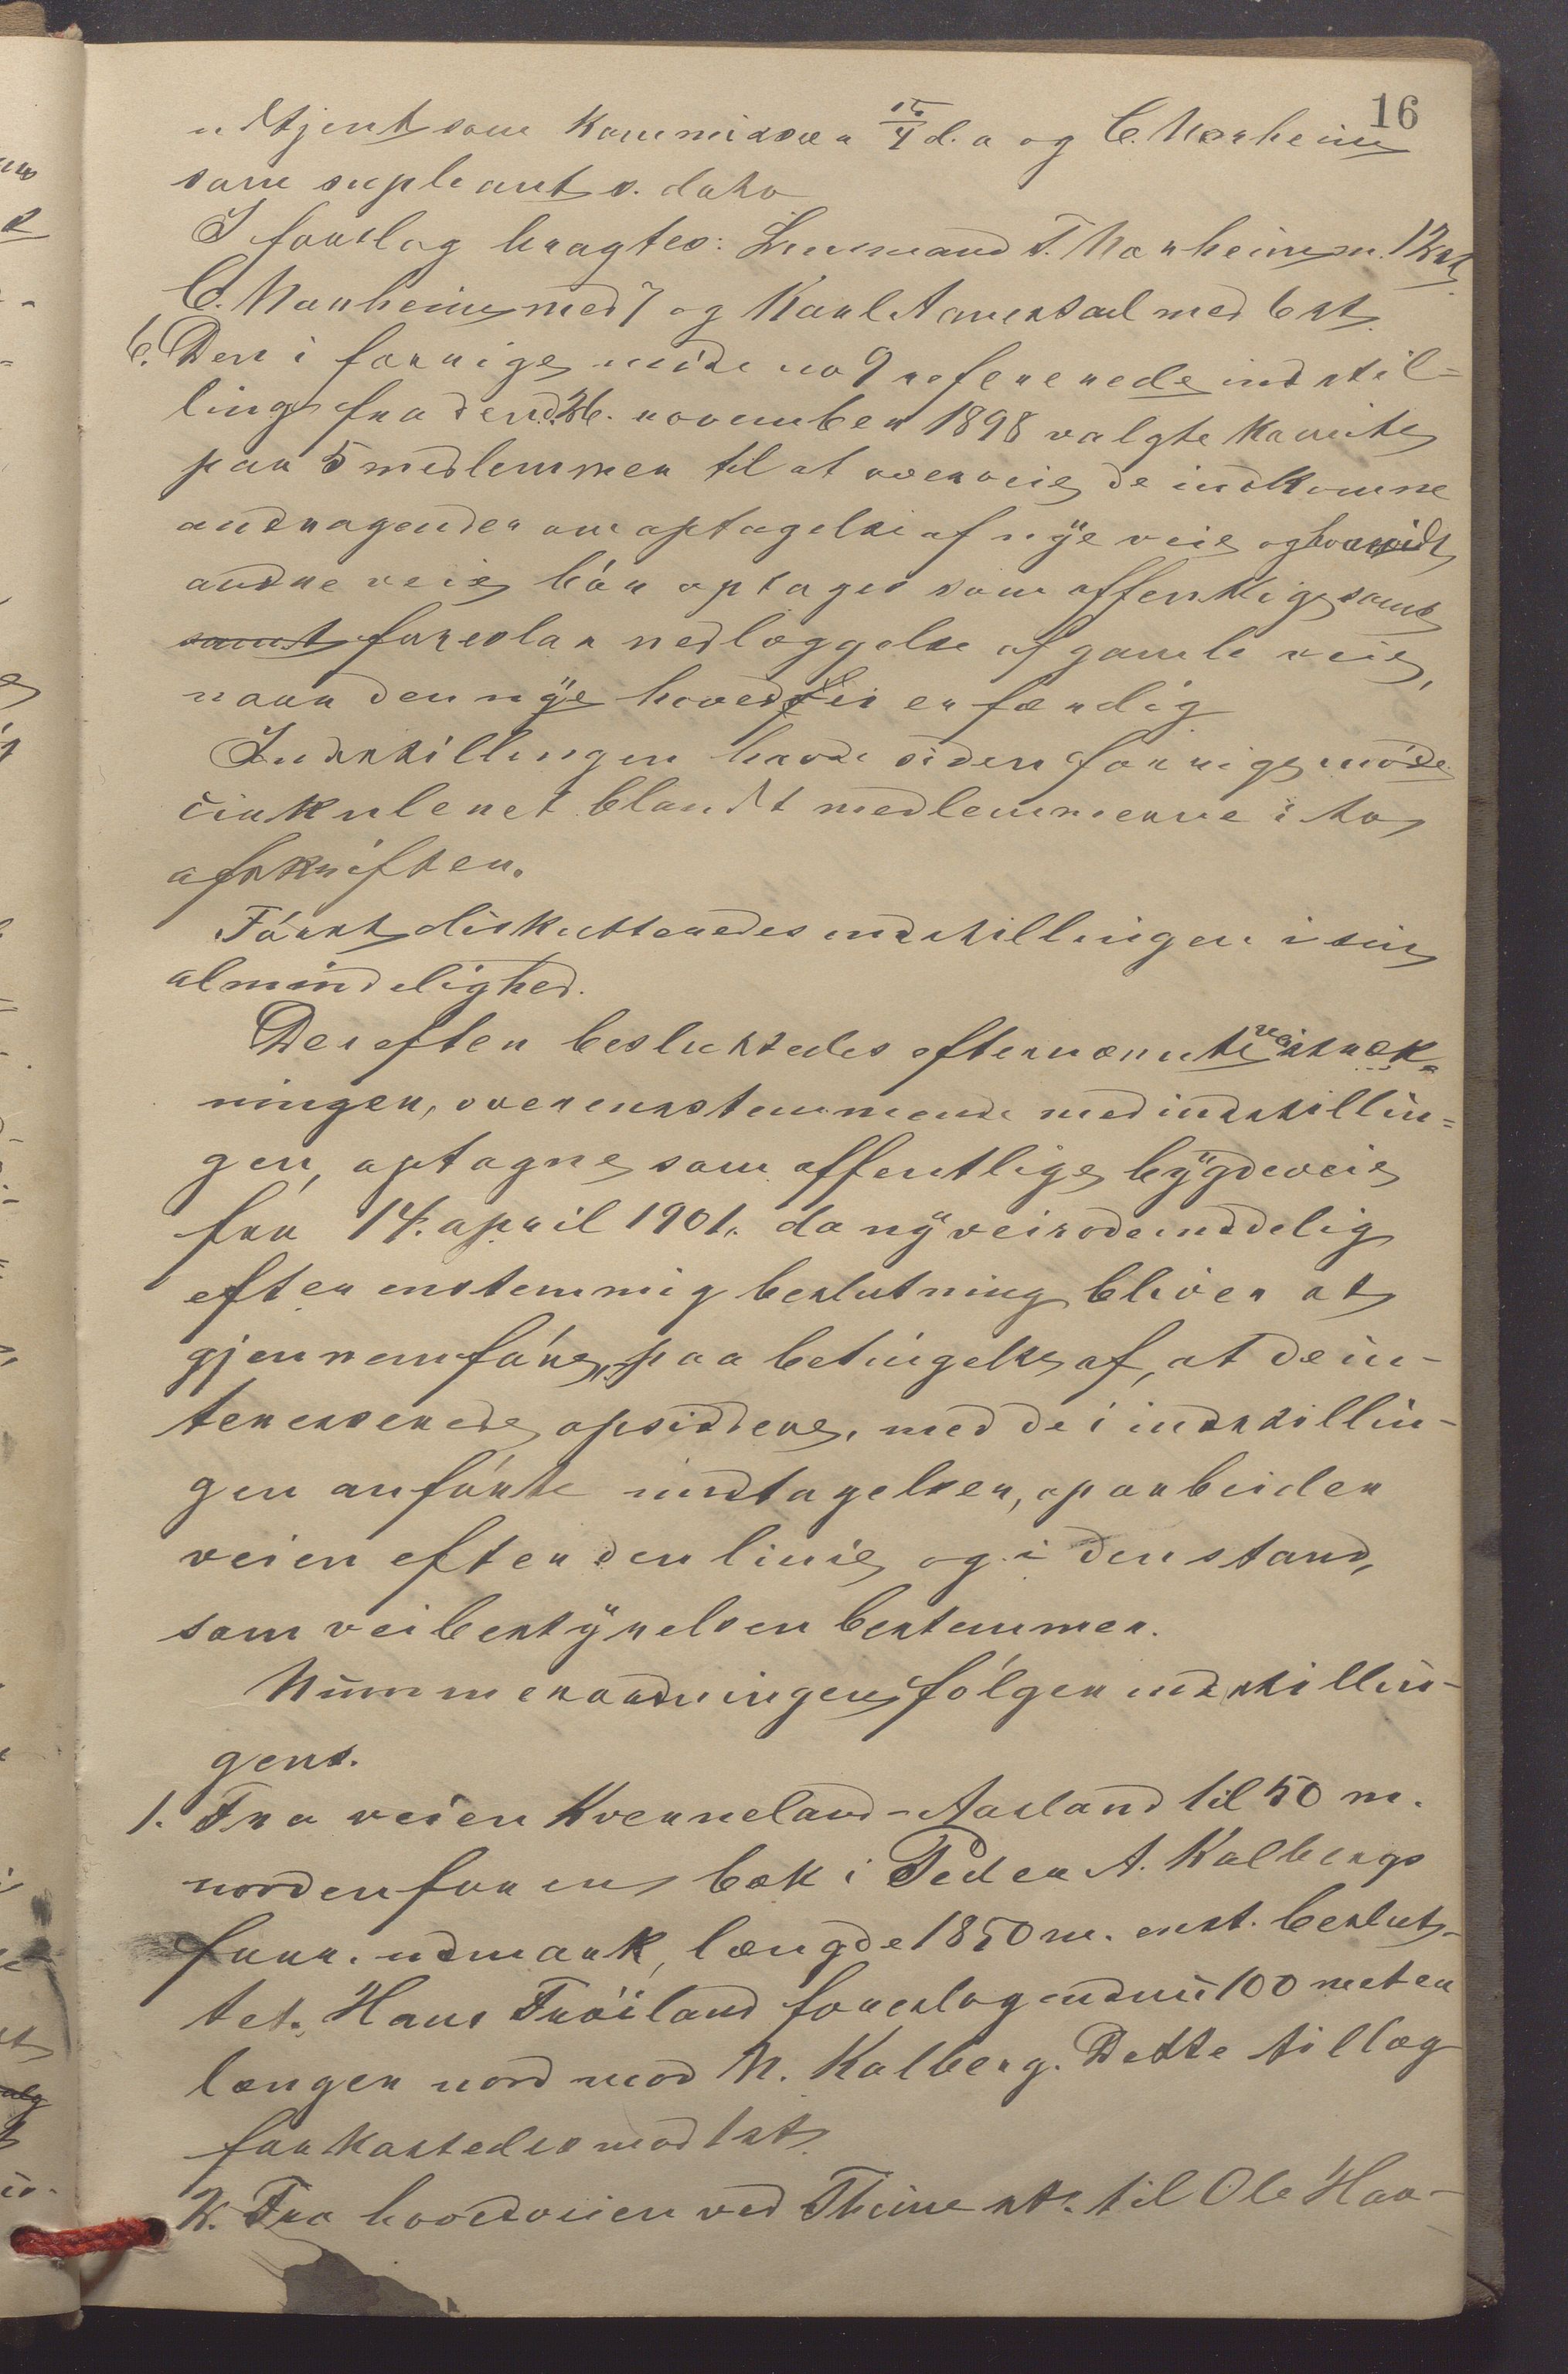 16
udtjent som kommissær 15/4 d.a og C. Norheim
som supleant s. dato
I forslag bragtes: Lensmand T. Norheim m. 12 st,
C. Norheim med 7 og Karl Aanestad med 6 st.
6. Den i forrige möde no 9 refererede indstil=
ling fra den d. 26. november 1898 valgte komite
paa 5 medlemmer til at overveie de indkomne
andragender om optagelse af nye veie og hvorvidt
andre veie bör optages som offentlige samt
samt foreslaa nedlæggelse af gamle veie,
naar den nye hovedvei er færdig
Indstillingen havde siden forrige möde
cirkuleret blandt medlemmerne i to
afskrifter.
Först diskutteredes indstillingen i sin
almindelighed.
Derefter besluttedes efternævnte veistræk-
ninger, overensstemmende med indstillin=
gen, optagne som offentlige bygdeveie
fra 14. april 1901. da ny veirodeinddeling
efter enstemmig beslutning bliver at
gjennemföre, paa betingelse af, at de in-
teresserede opsiddere, med de i indstillin-
gen anförte undtagelser, oparbeider
veien efter den linie og i den stand,
som veibestyrelsen bestemmer.
Nummerordningen fölger indstillin-
gens.
1. Fra veien Kverneland-Aasland til 50 m.
nordenfor en bæk i Peder A. Kalbergs
forr. udmark, længde 1850 m. enst. beslut-
tet. Hans Fröiland foreslog endnu 100 meter
længer nord mod N. Kalberg. Dette tillæg
forkastedes mod 1 st.
2. Fra hovedveien ved Thime st. til Ole Haa-